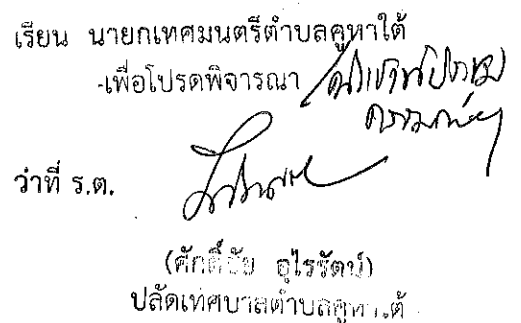 เรียน นายกเทศมนตรีตำบลคูหาใต้
-เพื่อโปรดพิจารณา
ว่าที่ ร.ต.
(ศักดิ์ชัย อุไรรัตน์)
ปลัดเทศบาลตำบลคูหาใต้